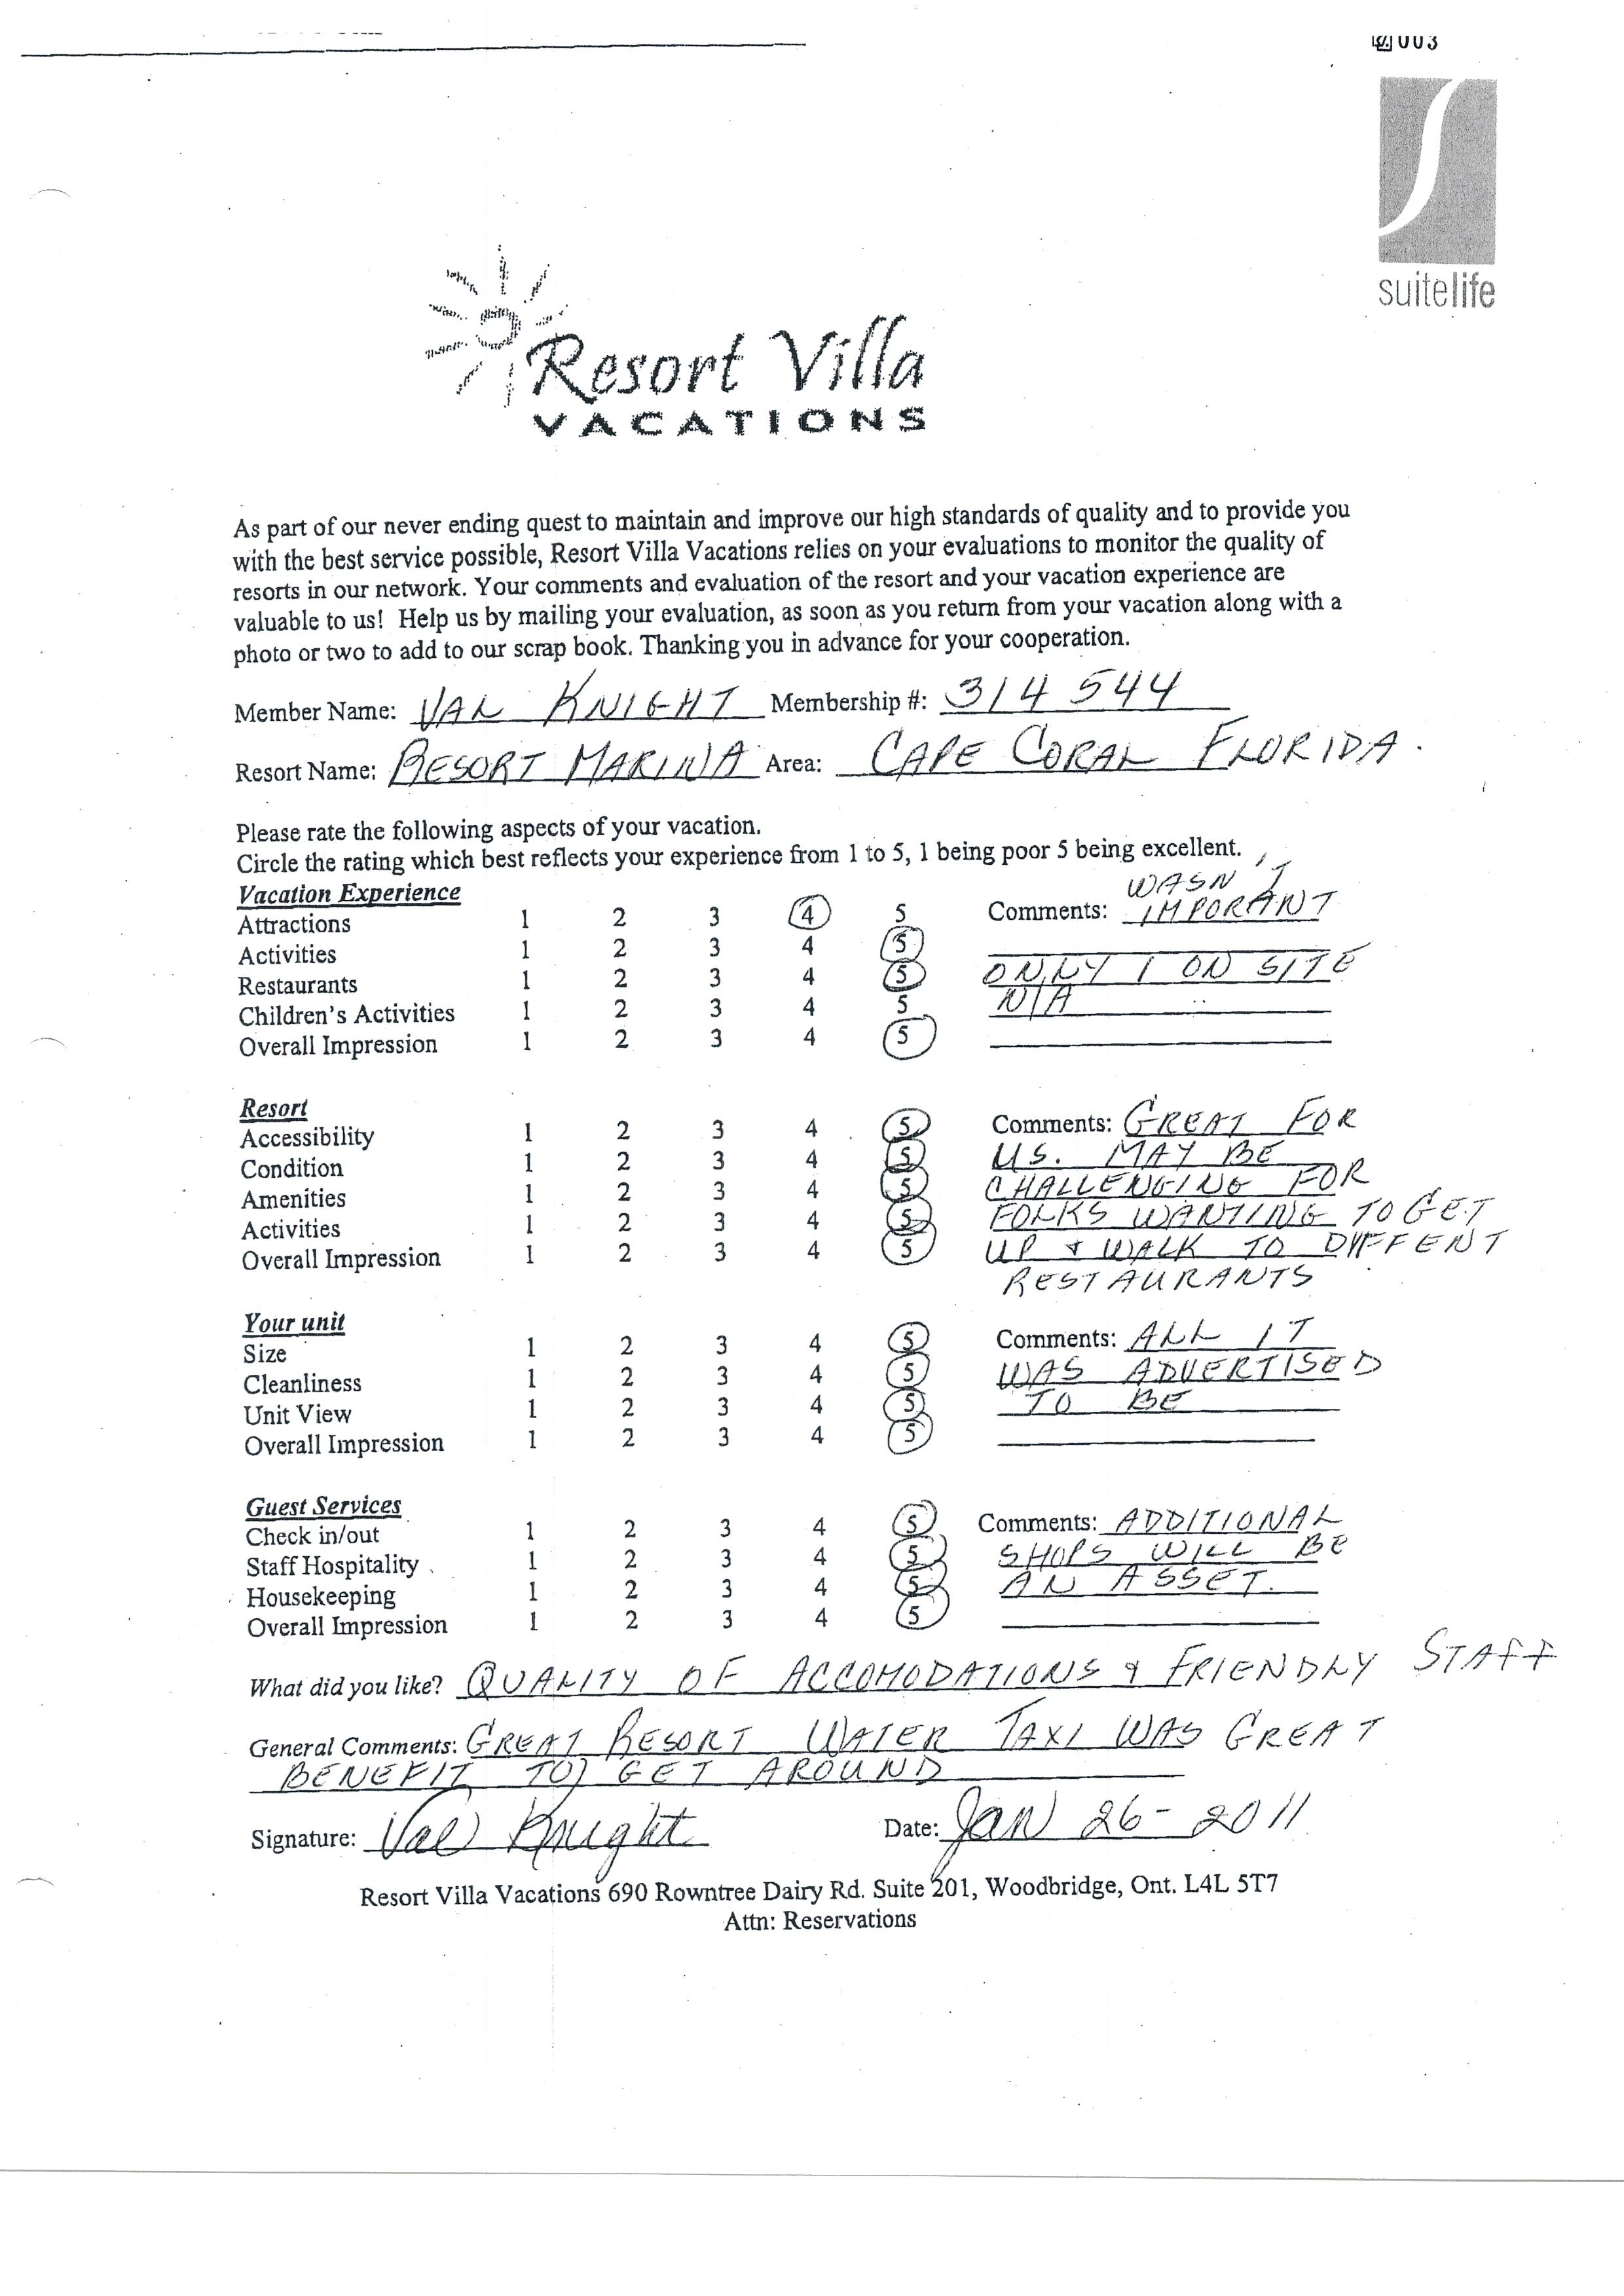 003
suitelife
Resort Villa
VACATIONS
As part of our never ending quest to maintain and improve our high standards of quality and to provide you
with the best service possible, Resort Villa Vacations relies on your evaluations to monitor the quality of
resorts in our network. Your comments and evaluation of the resort and your vacation experience are
valuable to us! Help us by mailing your evaluation, as soon as you return from your vacation along with a
photo or two to add to our scrap book. Thanking you in advance for your cooperation.
Member Name: VAL KNIGHT Membership #: 314 544
Resort Name: RESORT MARINA Area: CAPE CORAL FLORIDA.
Please rate the following aspects of your vacation.
Circle the rating which best reflects your experience from 1 to 5, 1 being poor 5 being excellent.
Vacation Experience WASN'T
Attractions 1 2 3 4 5 Comments: IMPORANT
Activities 1 2 3 4 5
Restaurants 1 2 3 4 5 ONLY 1 ON SITE
Children's Activities 1 2 3 4 5 N/A
Overall Impression 1 2 3 4 5
Resort
Accessibility 1 2 3 4 5 Comments: GREAT FOR
Condition 1 2 3 4 5 US. MAY BE
Amenities 1 2 3 4 5 CHALLENGING FOR
Activities 1 2 3 4 5 FOLKS WANTING TO GET
Overall Impression 1 2 3 4 5 UP & WALK TO DIFFENT
RESTAURANTS
Your unit
Size 1 2 3 4 5 Comments: ALL IT
Cleanliness 1 2 3 4 5 WAS ADVERTISED
Unit View 1 2 3 4 5 TO BE
Overall Impression 1 2 3 4 5
Guest Services
Check in/out 1 2 3 4 5 Comments: ADDITIONAL
Staff Hospitality 1 2 3 4 5 SHOPS WILL BE
Housekeeping 1 2 3 4 5 AN ASSET.
Overall Impression 1 2 3 4 5
What did you like? QUALITY OF ACCOMODATIONS & FRIENDLY STAFF
General Comments: GREAT RESORT WATER TAXI WAS GREAT
BENEFIT TO GET AROUND
Signature: Val Knight Date: Jan 26-2011
Resort Villa Vacations 690 Rowntree Dairy Rd. Suite 201, Woodbridge, Ont. L4L 5T7
Attn: Reservations